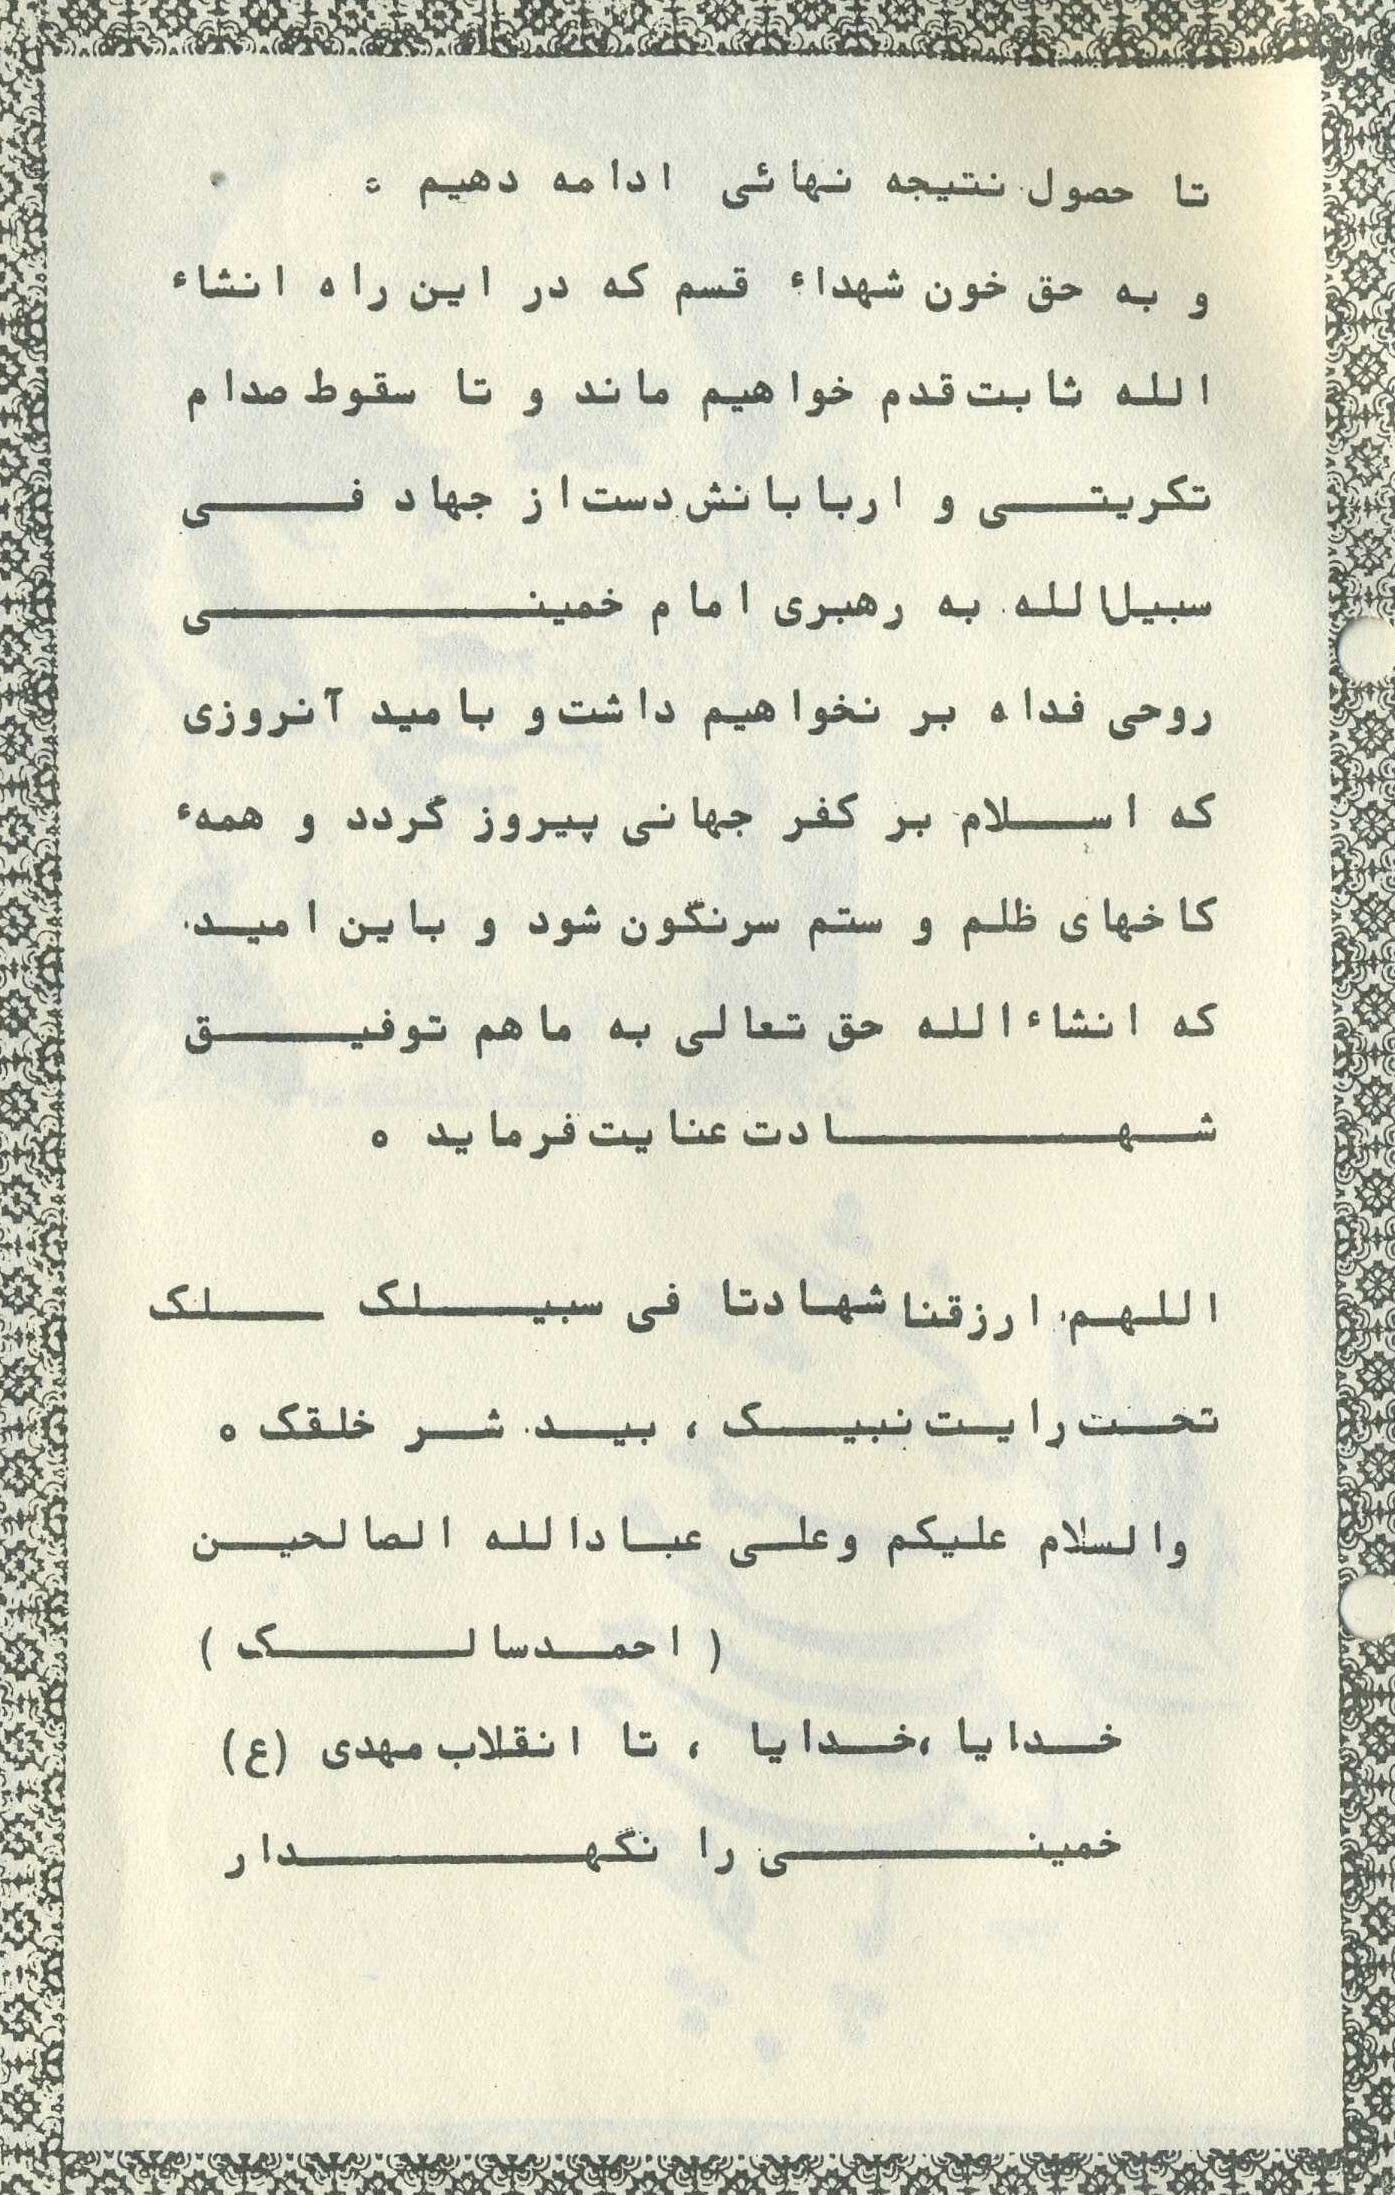 تا حصول نتیجه نهائی ادامه دهیم ۰
و به حق خون شهداء قسم که در این راه انشاء
الله ثابت‌قدم خواهیم ماند و تا سقوط صدام
تکریتی و اربابانش دست از جهاد فی
سبیل‌الله به رهبری امام خمینی
روحی فداه بر نخواهیم داشت و بامید آنروزی
که اسلام بر کفر جهانی پیروز گردد و همهء
کاخهای ظلم و ستم سرنگون شود و باین امید
که انشاءالله حق تعالی به ماهم توفیق
شهادت عنایت فرماید ه
اللهم ارزقنا شهادتا فی سبیلک لک
تحت رایت نبیک ، بید شر خلقک ه
والسلام علیکم وعلی عبادالله الصالحین
( احمد سالک )
خدایا ،خدایا ، تا انقلاب مهدی (ع)
خمینی را نگهدار